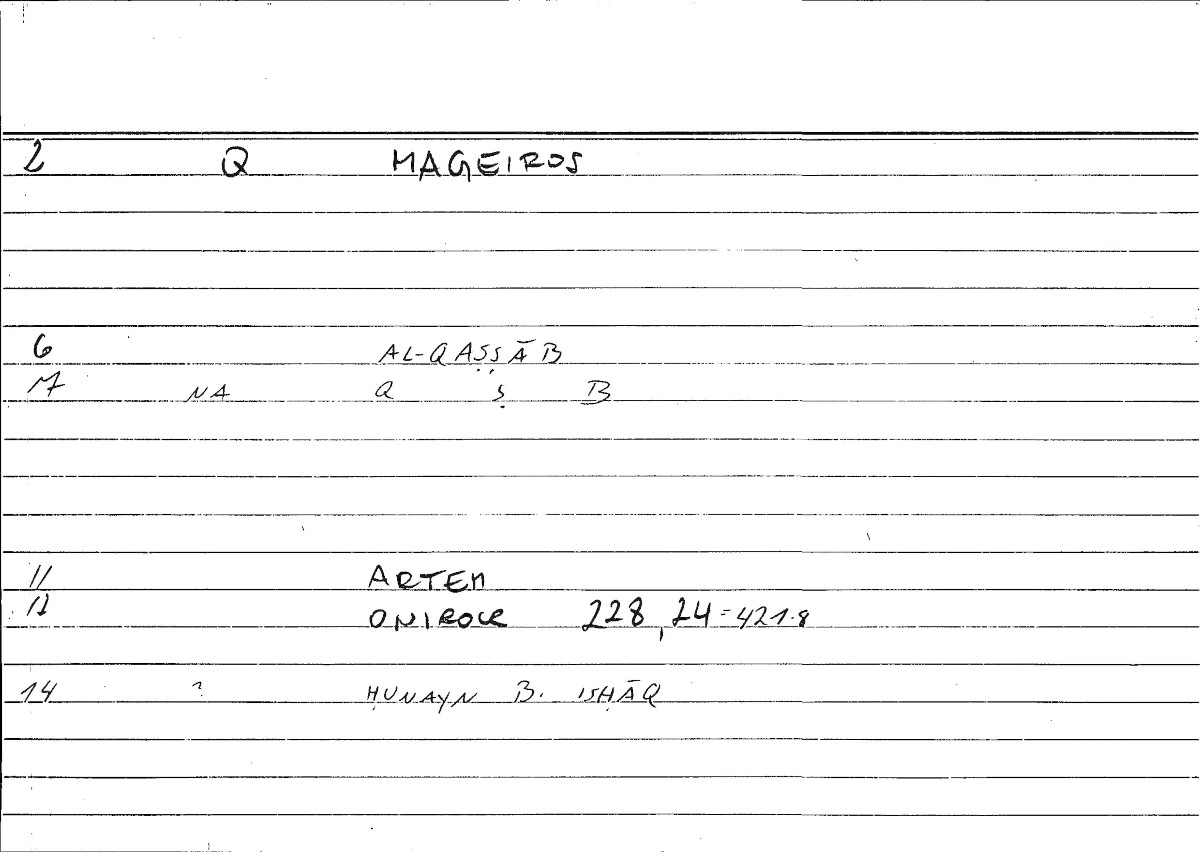 2 Q MAGEIROS
6 AL-QAṢṢĀB
7 NA Q Ṣ B
11 ARTEM
12 ONIROCR 228,24=421.8
14 ? ḤUNAYN B. ISḤĀQ